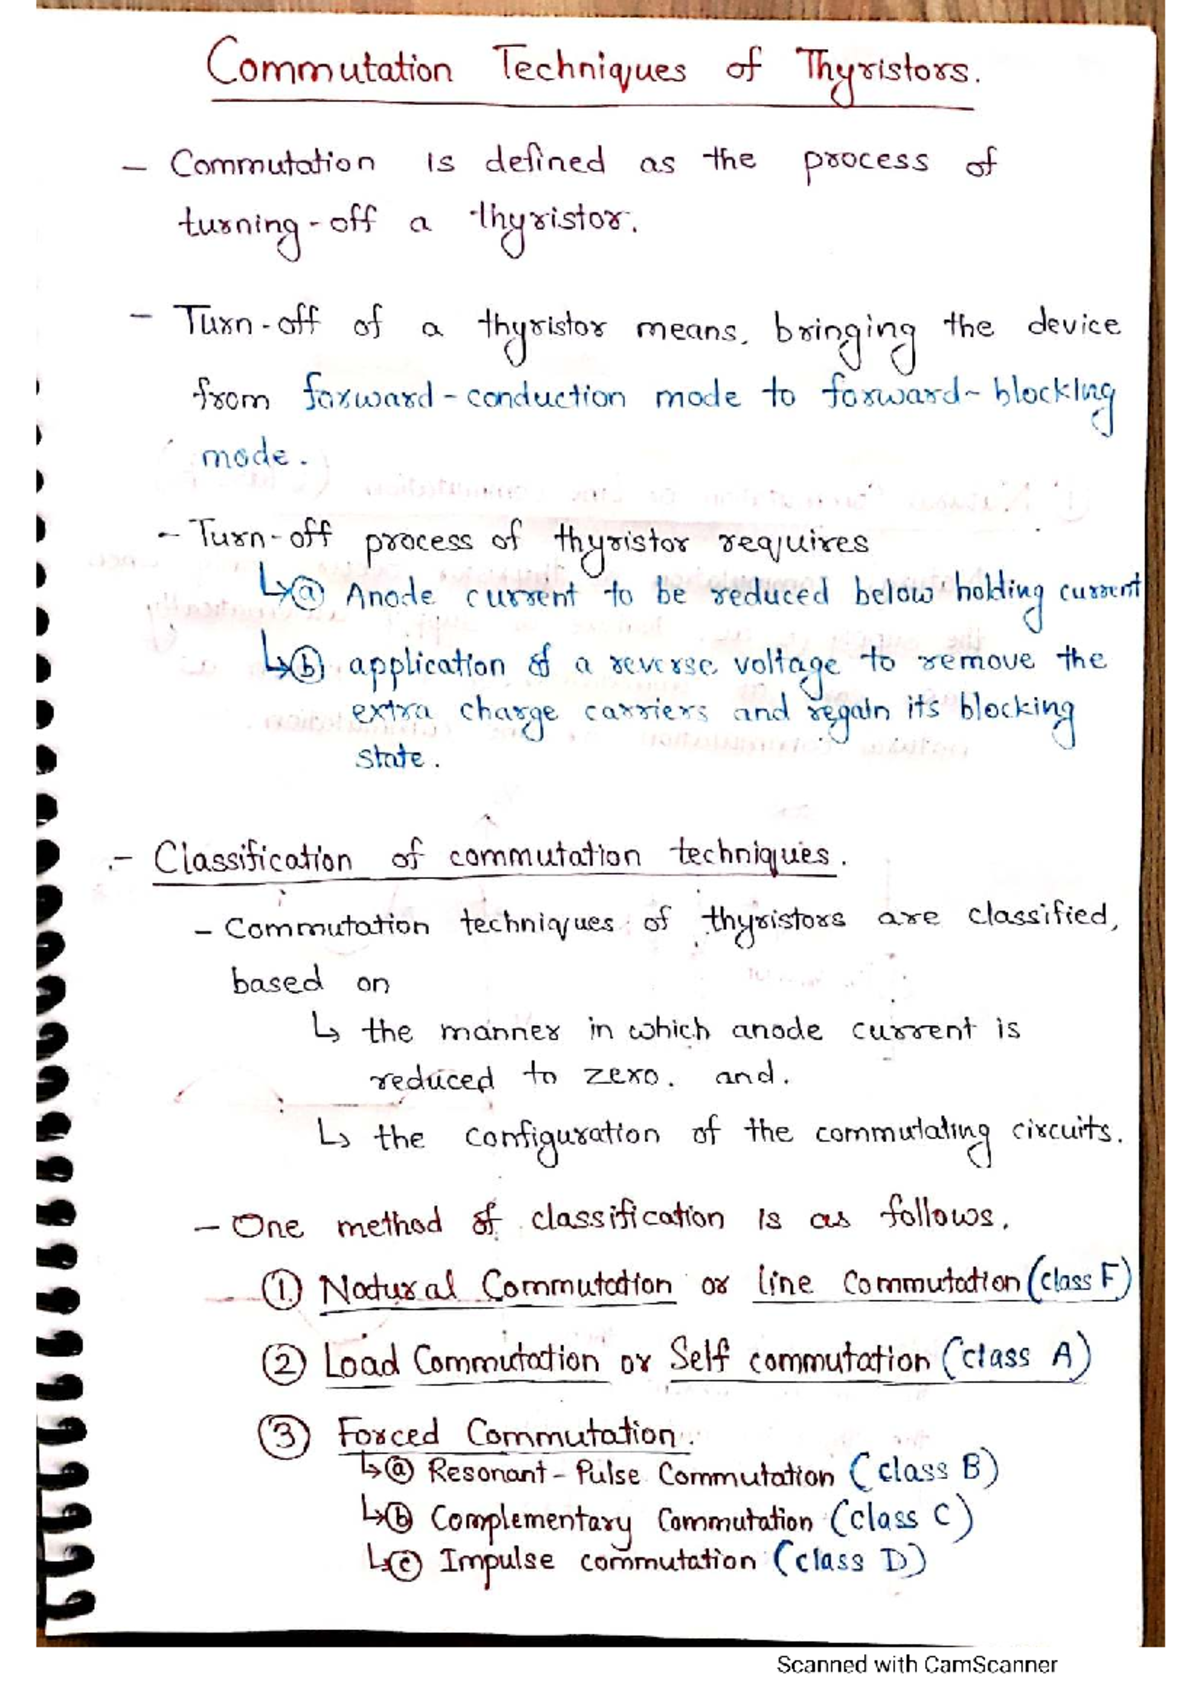 Commutation Techniques of Thyristors.
- Commutation is defined as the process of
turning-off a thyristor.
- Turn-off of a thyristor means, bringing the device
from forward-conduction mode to forward-blocking
mode.
- Turn-off process of thyristor requires
↳ⓐ Anode current to be reduced below holding current
↳ⓑ application of a reverse voltage to remove the
extra charge carriers and regain its blocking
state.
- Classification of commutation techniques.
- Commutation techniques of thyristors are classified,
based on
↳ the manner in which anode current is
reduced to zero. and.
↳ the configuration of the commutating circuits.
- One method of classification is as follows.
① Natural Commutation or line commutation (class F)
② Load Commutation or Self commutation (class A)
③ Forced Commutation.
↳ⓐ Resonant-Pulse Commutation (class B)
↳ⓑ Complementary Commutation (class C)
↳ⓒ Impulse commutation (class D)
Scanned with CamScanner